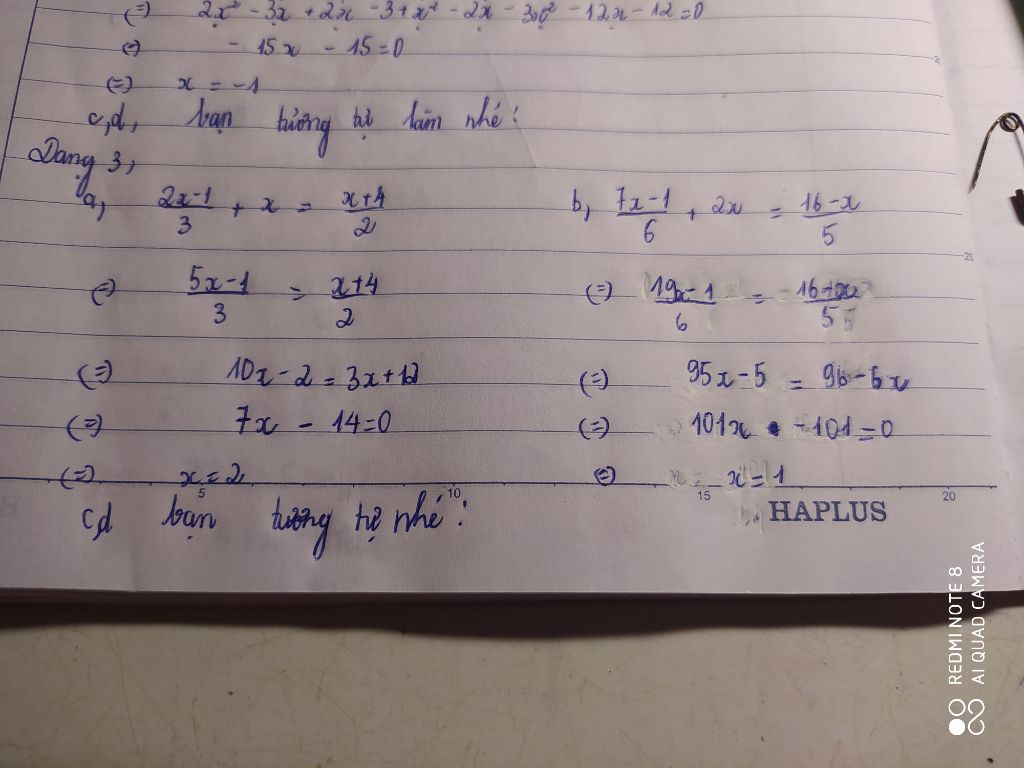 (=) 2x² - 3x + 2x - 3 + x² - 2x - 3x² - 12x - 12 = 0
(=) - 15x - 15 = 0
(=) x = -1
c, d, bạn tương tự làm nhé!
Dạng 3,
a, (2x-1)/3 + x = (x+4)/2
b, (7x-1)/6 + 2x = (16-x)/5
(=) (5x-1)/3 = (x+4)/2
(=) (19x-1)/6 =
(=) 10x - 2 = 3x + 12
(=) 95x - 5 = 96 - 6x
(=) 7x - 14 = 0
(=) 101x - 101 = 0
(=) x = 2
(=) x = 1
5 10 15 20
25
c, d bạn tương tự nhé!
HAPLUS
REDMI NOTE 8
AI QUAD CAMERA